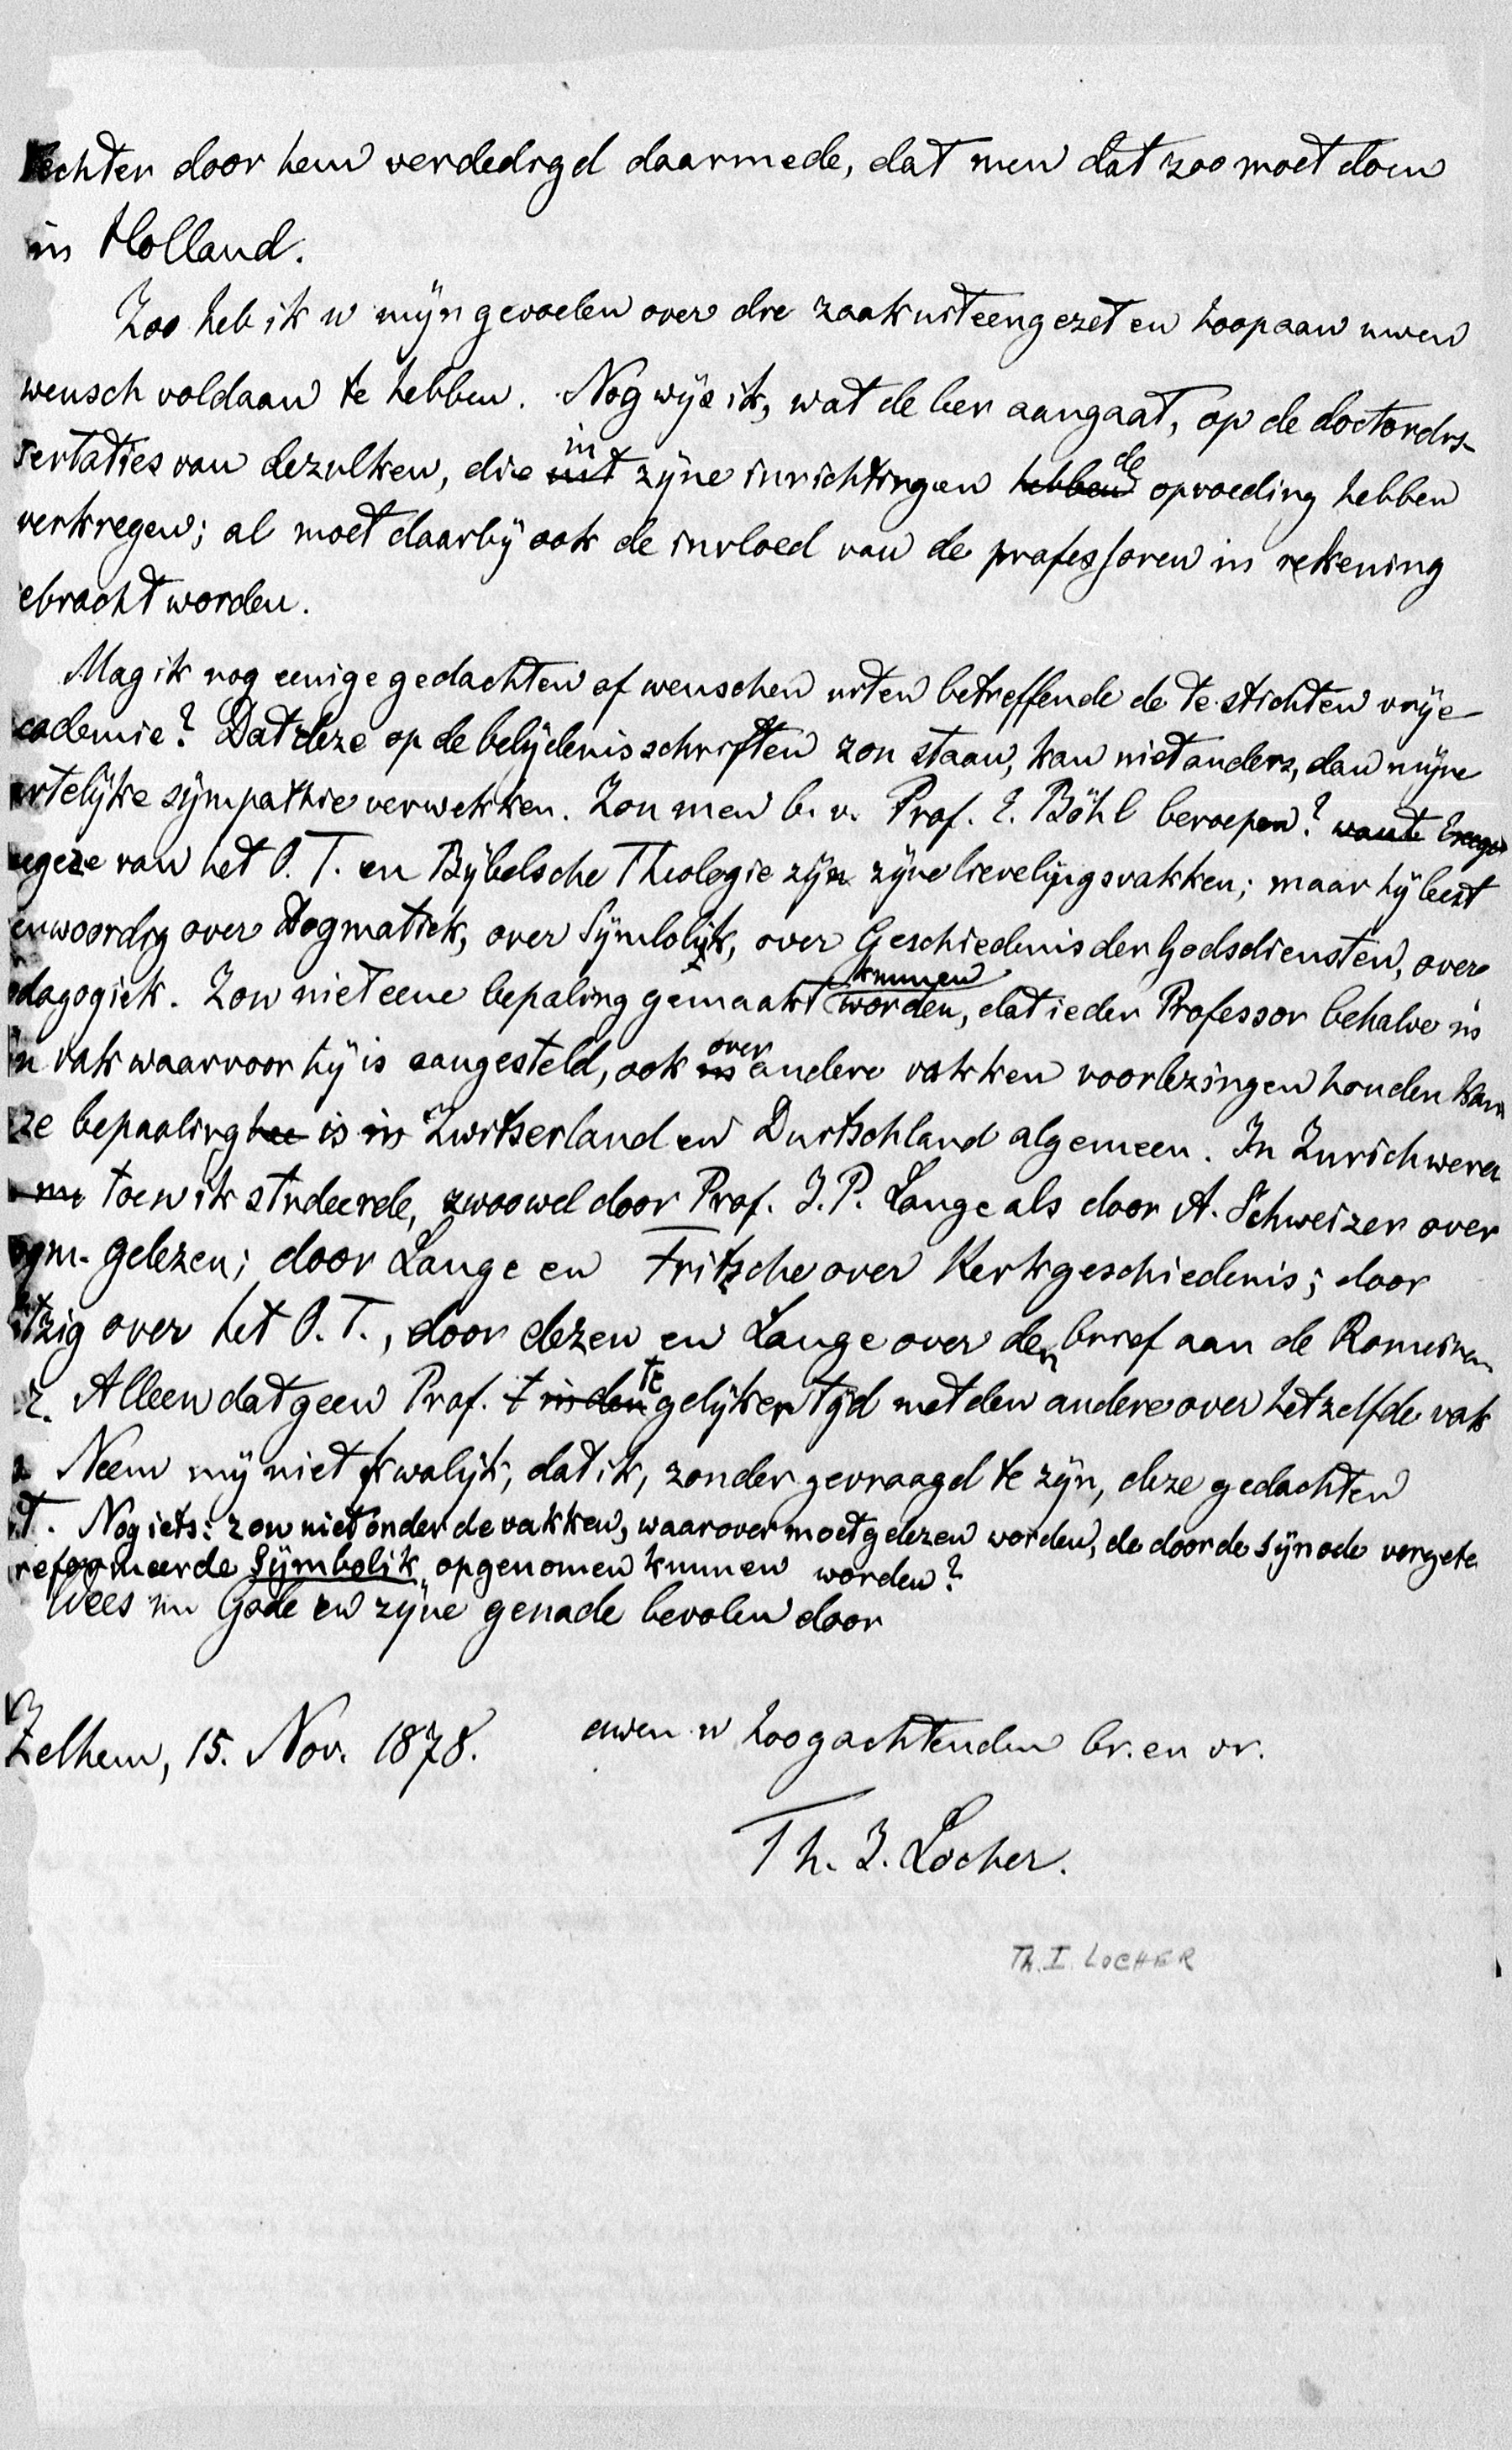 echter door hem verdedigd daarmede, dat men dat zoo moet doen
in Holland.
Zoo heb ik u mijn gevoelen over die zaak uiteengezet en hoop aan uwen
wensch voldaan te hebben. Nog wijs ik, wat de leer aangaat, op de doctordis-
sertaties van dezulken, die in uit zijne inrichtingen hebben de opvoeding hebben
verkregen; al moet daarbij ook de invloed van de professoren in rekening
ebracht worden.
Mag ik nog eenige gedachten of wenschen uiten betreffende de te stichten vrije
cademie? Dat deze op de belijdenisschriften zou staan, kan niet anders, dan mijne
rtelijke sympathie verwekken. Zou men b. v. Prof. E. Böhl beroepen? want Exege
egeze van het O. T. en Bijbelsche Theologie zijn zijne lievelingsvakken; maar hij leest
enwoordig over Dogmatiek, over Symboliek, over Geschiedenis der Godsdiensten, over
dagogiek. Zou niet eene bepaling gemaakt kunnen worden, dat ieder Professor behalve in
n vak waarvoor hij is aangesteld, ook in over andere vakken voorlezingen houden kan
ze bepaaling is in Zwitserland en Duitschland algemeen. In Zurich werd
toen ik studeerde, zwoowel door Prof. J. P. Lange als door A. Schweizer over
ogm. gelezen; door Lange en Fritzsche over Kerkgeschiedenis; door
itzig over het O. T., door dezen en Lange over den brief aan de Romeinen
z. Alleen dat geen Prof. t in den te gelijker tijd met den andere over hetzelfde vak
Neem mij niet kwalijk, dat ik, zonder gevraagd te zijn, deze gedachten
t. Nog iets: zou niet onder de vakken, waarover moet gelezen worden, de door de synode vergete
reformeerde Symboliek opgenomen kunnen worden?
Wees nu Gode en zijne genade bevolen door
Zelhem, 15. Nov. 1878. uwen u hoogachtenden br. en vr.
Th. J. Locher.
Th. I. LOCHER